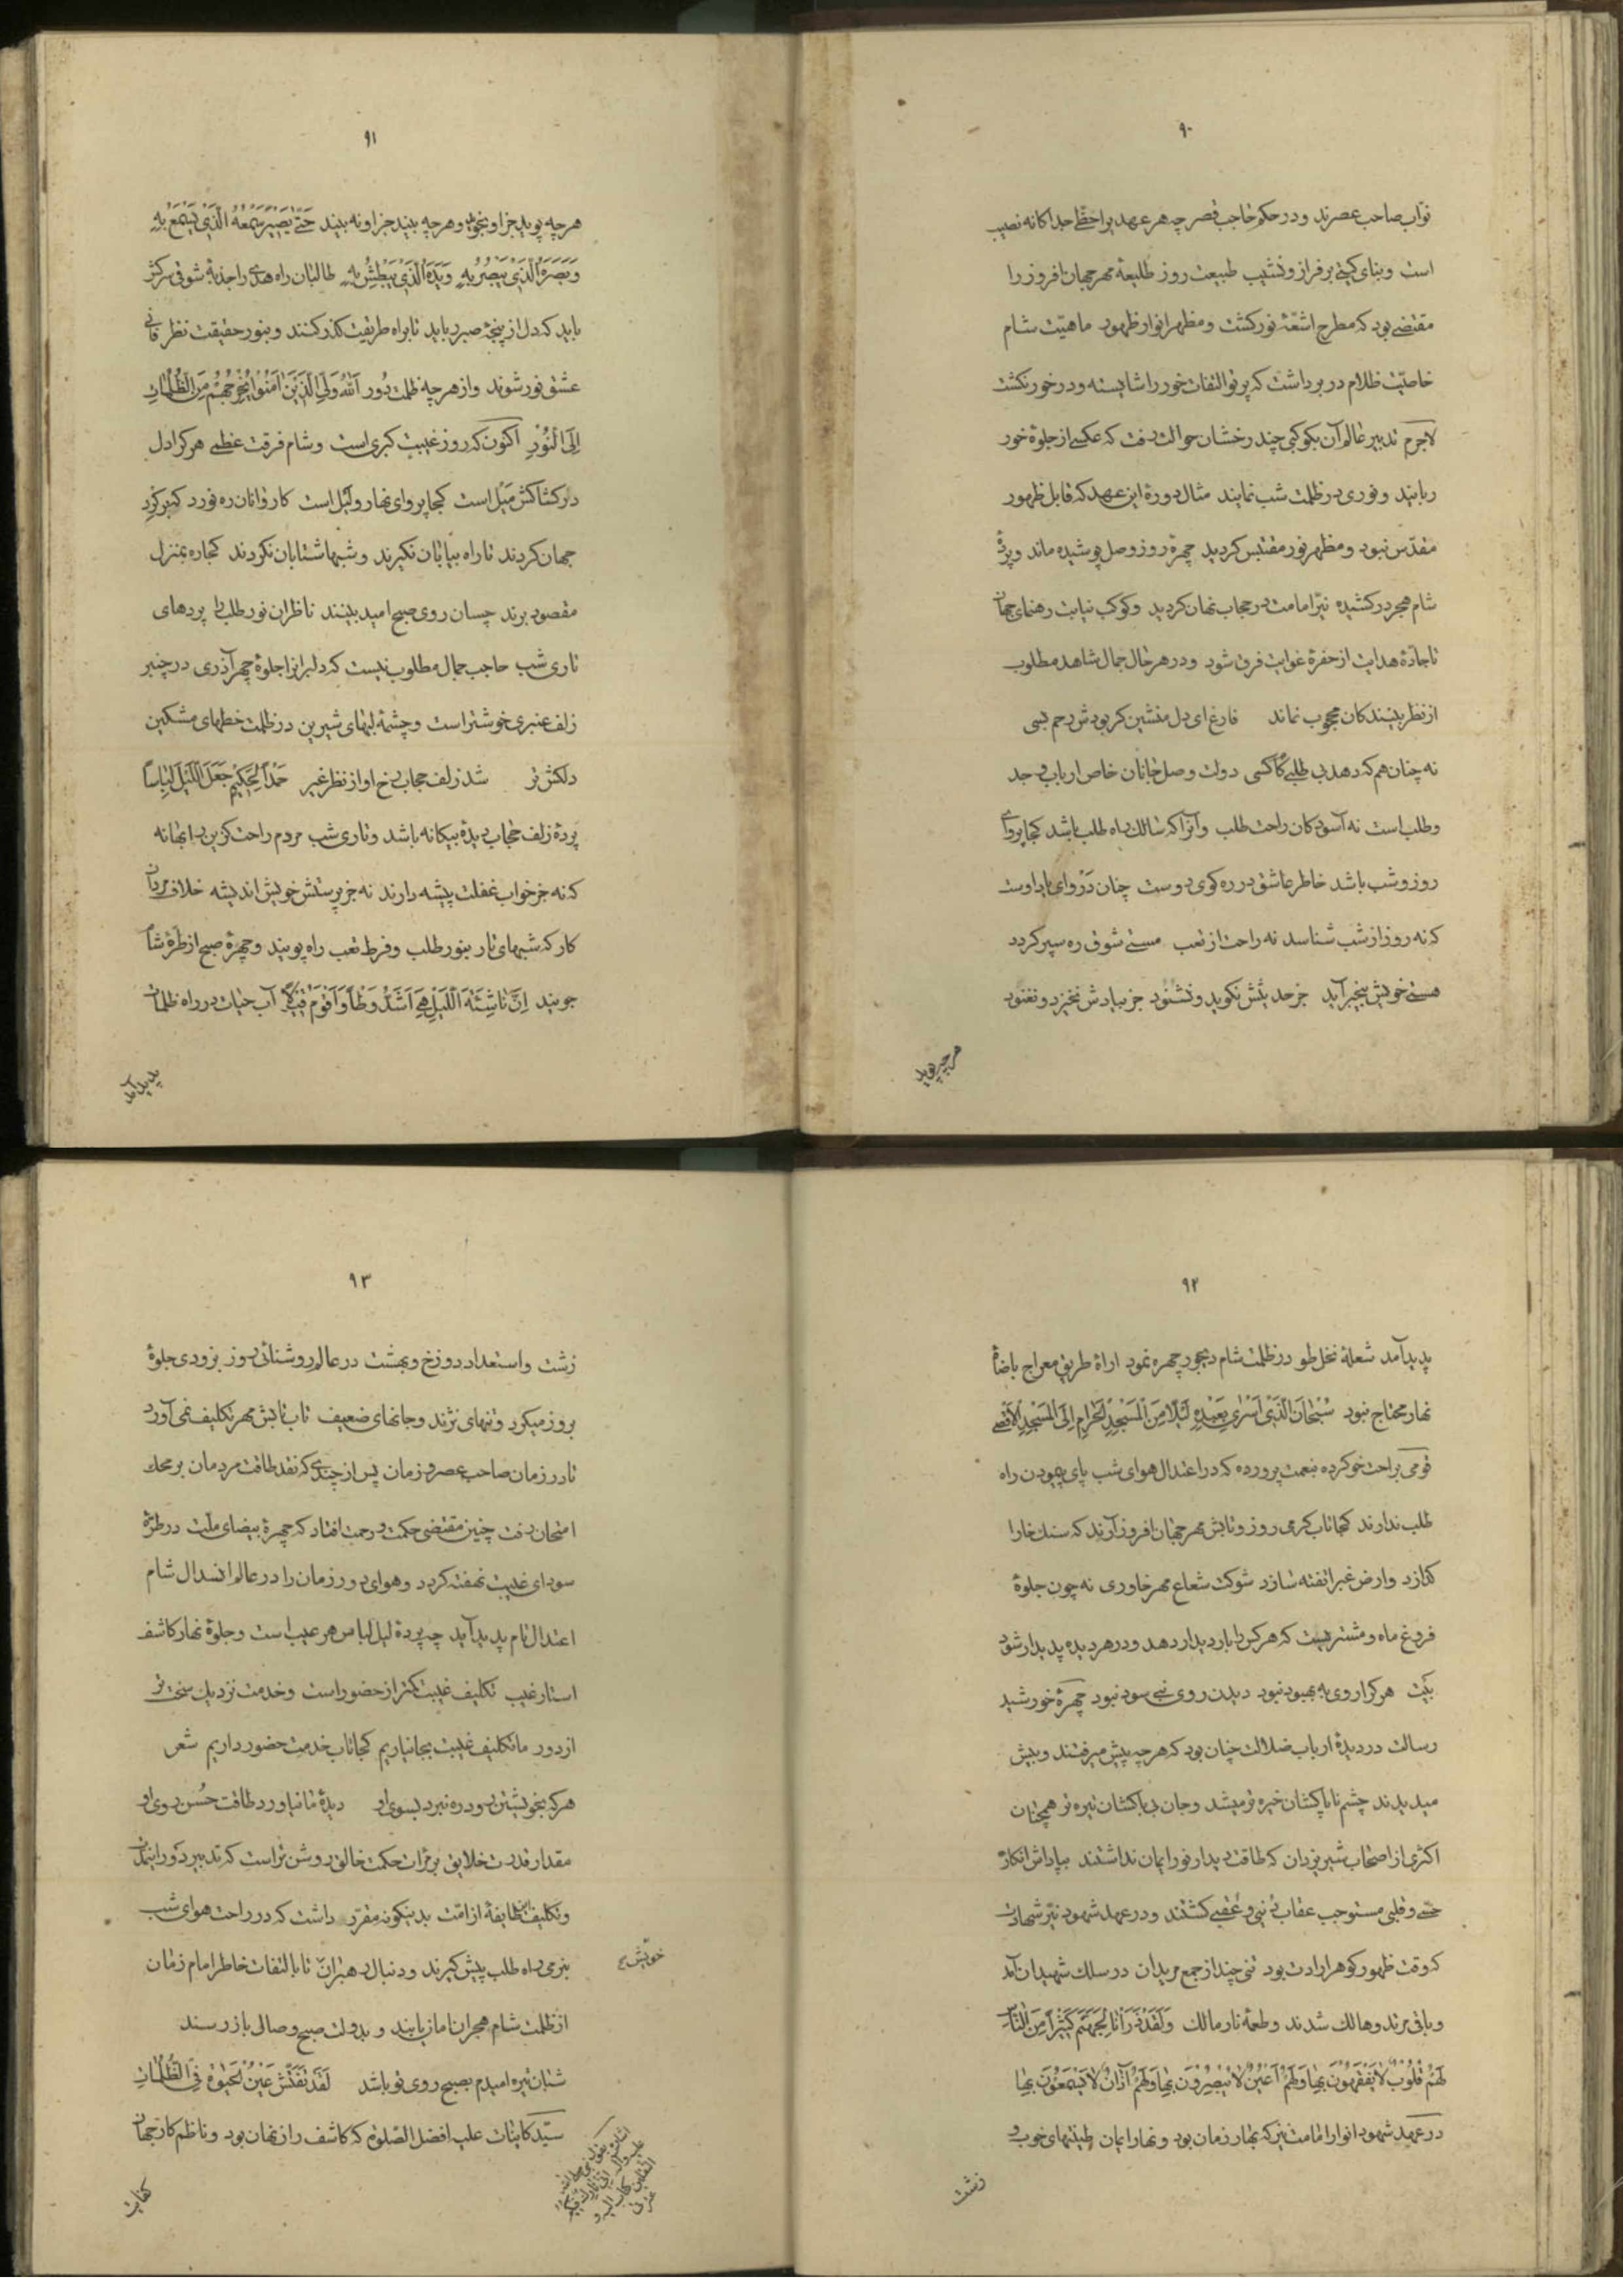 ۹۰
نواب صاحب عصرند و در حکم حاجب قصر چه هر عهدیرا حظی جداکانه نصیب
است و بنای کیتی بر فراز و نشیب طبیعت روز طلیعهٔ مهر جهان افروز را
مقتضی بود که مطرح اشعّهٔ نور کشت و مظهر انوار ظهور ماهیّت شام
خاصیّت ظلام در بر داشت که پرتو التفات خور را شایسته و در خور نکشت
لاجرم تدبیر عالم آن بکوکبی چند رخشان حوالت رفت که عکسی از جلوهٔ خور
ربایند و نوری در ظلمت شب نمایند مثال دورهٔ این عهد که قابل ظهور
مقدّس نبود و مظهر نور مقتبس کردید چهرهٔ روز وصل پوشیده ماند و پردهٔ
شام هجر در کشیده نیّر امامت در حجاب نهان کردید و کوکب نیابت رهنمای جهان
تا جادّهٔ هدایت از حفرهٔ غوایت فرق شود و در هر حال جمال شاهد مطلوب
از نظر بینندکان محجوب نماند فارغ ای دل منشین کر بودش رحم بسی
نه چنان هم که دهد بی طلبی کام کسی دولت وصل جانان خاص ارباب وجد
و طلب است نه آسودکان راحت طلب و آنرا که سالک راه طلب باشد کجا پروای
روز و شب باشد خاطر عاشق در ره کوی دوست چنان در وای یاد اوست
که نه روز از شب شناسد نه راحت از تعب مستی شوق ره سپر کردد
هستی خویش بیخبر آید جز حدیثش نکوید و نشنود جز بیادش نخیزد و نغنود
هر چه پوید
۹۱
هر چه پوید جز او نجوید و هر چه بیند جز او نه بیند حَتّی یَصیرَ سَمْعَهُ الَّذی یَسْمَعُ بِهِ
وَبَصَرَهُ الَّذی یَبْصُرُ بِهِ وَیَدَهُ الَّذی یَبْطِشُ بِهِ طالبان راه هدی را جذبهٔ شوقی سرکش
باید که دل از پنجهٔ صبر رباید تا براه طریقت کذر کنند و بنور حقیقت نظر فانی
عشق نور شوند و از هر چه ظلمت دور اَللهُ وَلِیُّ الَّذینَ اٰمَنُوا یُخْرِجُهُمْ مِنَ الظُّلُمٰاتِ
اِلَی النُّورِ اکنون که روز غیبت کبری است و شام فرقت عظمی هر کرا دل
در کشاکش میل است کجا پروای نهار و لیل است کاروانان ره نورد که بر کرد
جهان کردند تا راه بیابان نکیرند و شبها شتابان نکردند کجا ره بمنزل
مقصود برند چسان روی صبح امید بینند ناظران نور طلب را پردهای
تاری شب حاجب جمال مطلوب نیست که دلبرانرا جلوهٔ چهر آذری در چنبر
زلف عنبری خوشتر است و چشمهٔ لبهای شیرین در ظلمت خطهای مشکین
دلکش تر شد زلف حجاب رخ او از نظر غیر حَمْداً لِحَکیمٍ جَعَلَ اللَّیْلَ لِبٰاساً
پردهٔ زلف حجاب دیدهٔ بیکانه باشد و تاری شب مردم راحت کزین را بهانه
که نه جز خواب غفلت پیشه دارند نه جز پرستش خویش اندیشه خلاف مردان
کار که شبهای تار بنور طلب و فرط تعب راه پویند و چهرهٔ صبح از طرّهٔ شام
جویند اِنَّ نٰاشِئَةَ اللَّیْلِ هِیَ اَشَدُّ وَطْأً وَاَقْوَمُ قیلاً آب حیات در راه ظلمات
پدید آمد
۹۲
پدید آمد شعلهٔ نخل طور در ظلمت شام دیجور چهره نمود اراهٔ طریق معراج باضاءهٔ
نهار محتاج نبود سُبْحٰانَ الَّذی اَسْریٰ بِعَبْدِهِ لَیْلاً مِنَ الْمَسْجِدِ الْحَرٰامِ اِلَی الْمَسْجِدِ الْاَقْصیٰ
قومی براحت خو کرده بنعمت پرورده که در اعتدال هوای شب پای پیمودن راه
طلب ندارند کجا تاب کرمی روز و تابش مهر جهان افروز آرند که سنک خارا
کدازد و ارض غبرا تفته سازد شوکت شعاع مهر خاوری نه چون جلوهٔ
فروغ ماه و مشتریست که هر کس را بار دیدار دهد و در هر دیده پدیدار شود
بَیت هر کرا روی به بهبود نبود دیدن روی نبی سود نبود چهرهٔ خورشید
رسالت در دیدهٔ ارباب ضلالت چنان بود که هر چه پیش میرفتند و بیش
میدیدند چشم ناپاکشان خیره تر میشد و جان بی باکشان تیره تر همچنان
اکثری از اصحاب شیر یزدان که طاقت دیدار نور ایمان نداشتند بپاداش انکار
حسّی و قلبی مستوجب عقاب دنیی و عُقبی کشتند و در عهد شهود نیّر شهادت
که وقت ظهور کوهر ارادت بود تنی چند از جمع مریدان در سلک شهیدان آمد
و باقی مرتد و هالک شدند و طعمهٔ نار مالک وَلَقَدْ ذَرَأْنٰا لِجَهَنَّمَ کَثیراً مِنَ النّٰاسِ
لَهُمْ قُلُوبٌ لٰا یَفْقَهُونَ بِهٰا وَلَهُمْ اَعْیُنٌ لٰا یُبْصِرُونَ بِهٰا وَلَهُمْ آذٰانٌ لٰا یَسْمَعُونَ بِهٰا
در عهد شهود انوار امامت نیز که بهار زمان بود و نهار ایمان طینتهای خوب و
زشت
۹۳
زشت و استعداد دوزخ و بهشت در عالم روشنائی روز بزودی جلوهٔ
بروز میکرد و تنهای نژند و جانهای ضعیف تاب تابش مهر تکلیف نمی آورد
تا در زمان صاحب عصر و زمان پس از چندی که نقد طاقت مردمان بر محک
امتحان رفت چنین مقتضی حکمت و رحمت افتاد که چهرهٔ بیضای ملّت در طرّهٔ
سودای غیبت نهفته کردد و هوای دور زمان را در عالم انسدال شام
اعتدال تام پدید آید چه پردهٔ لیل لباس هر عیب است و جلوهٔ نهار کاشف
استار غیب تکلیف غیبت کمتر از حضور است و خدمت نزدیک سخت تر
از دور ما تکلیف غیبت بجا نیاریم کجا تاب خدمت حضور داریم شعر
هر که بخویشتن رود ره نبرد بسوی او دیدهٔ ما نیاورد طاقت حُسن روی او
مقدار قدرت خلایق بر مرآت حکمت خالق روشن تر است که تدبیر دور ایمان
و تکلیف این طایفهٔ از امّت بدینکونه مقرّر داشت که در راحت هوای شب
بنرمی راه طلب پیش کیرند و دنبال رهبران تا با التفات خاطر امام زمان
خویش
از ظلمت شام هجران امان یابند و بدولت صبح وصالی باز رسند
شبان تیره امیدم بصبح روی تو باشد لَقَدْ نُفَتِّشُ عَیْنَ الْحَیٰوةِ فِی الظُّلُمٰاتِ
سیّد کاینات علیه افضل الصّلوة که کاشف راز نهان بود و ناظم کار جهان
کتاب